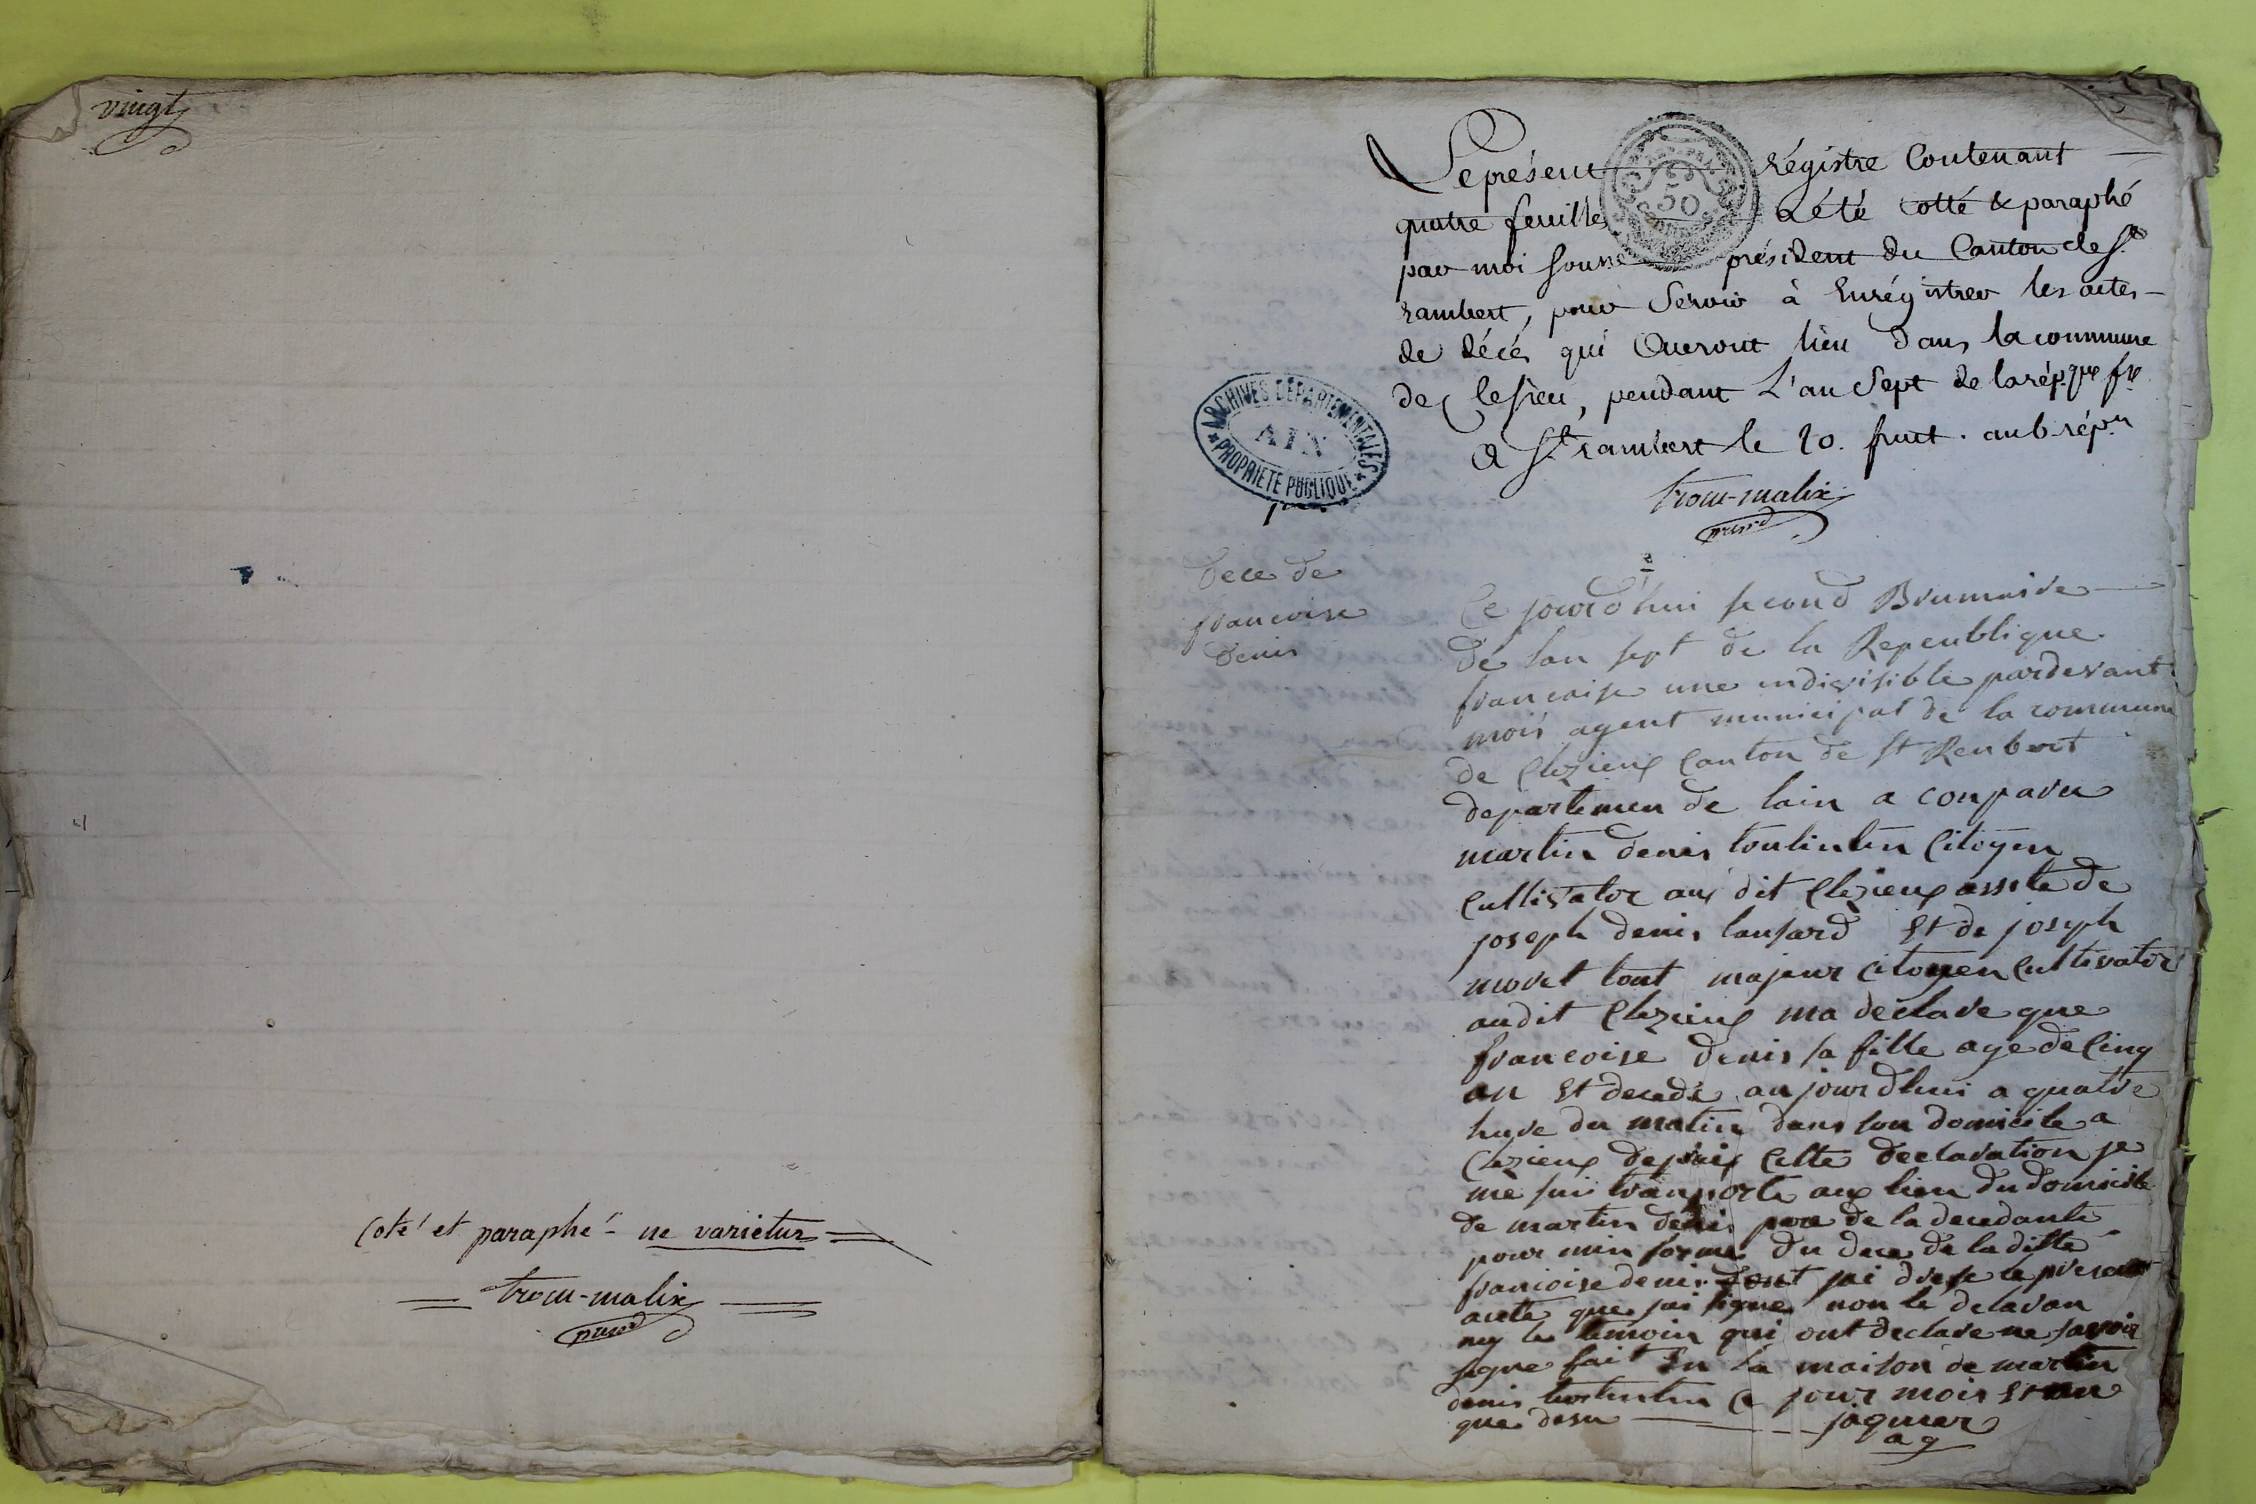 vingt
Coté et paraphé - ne varietur
trocu-malix
presd
Le présent régistre Contenant
quatre feuilles a été cotté & paraphé
par moi souss président du Canton de St
rambert, pour Servir à Enrégistrer les actes
de décés qui Auront lieu dans la commune
de Clesieu, pendant L'an Sept de la rép.que fr.
A St rambert le 20. fruct. an 6 rép.n
trocu-malix
presd
50
ARCHIVES DEPARTEMENTALES
AIN
PROPRIETE PUBLIQUE
Dece de
francoise
Denis
Ce jourdhui second Brumaire
de lan sept de la Repeublique
francaise une indivisible pardevant
mois agent municipal de la commune
de Clezieux Canton de St Renbert
departemen de lain a conparu
martin denis toutintin Citoyen
Cultivator aux dit Clezieux assite de
joseph denis lansard Et de joseph
moret tout majeur Citoyen Cultivator
audit Clezieux ma declare que
francoise denis sa fille age de Cinq
an Et decede aujourdhui a quatre
hure du matin dans son domicile a
Clezieux depuis Cette declaration je
me suis transporte aux lieu du domicile
de martin denis pere de la decedante
pour min formé du dece de la ditte
francoise denis dont jai drese le presen
acte que jai signe non le delaran
ny le temoin qui ont declare ne savoir
signe fait En la maison de martin
denis Ce jour mois Et an
que desu jaquier
ag